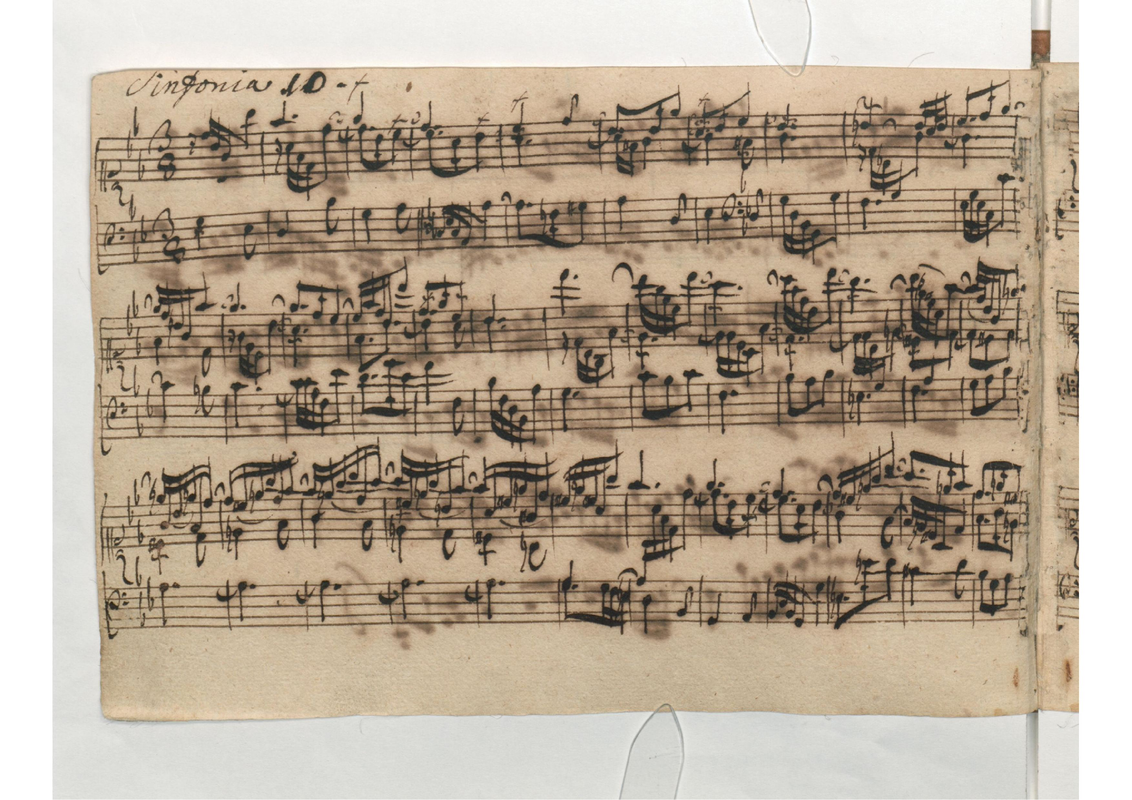 Sinfonia 10